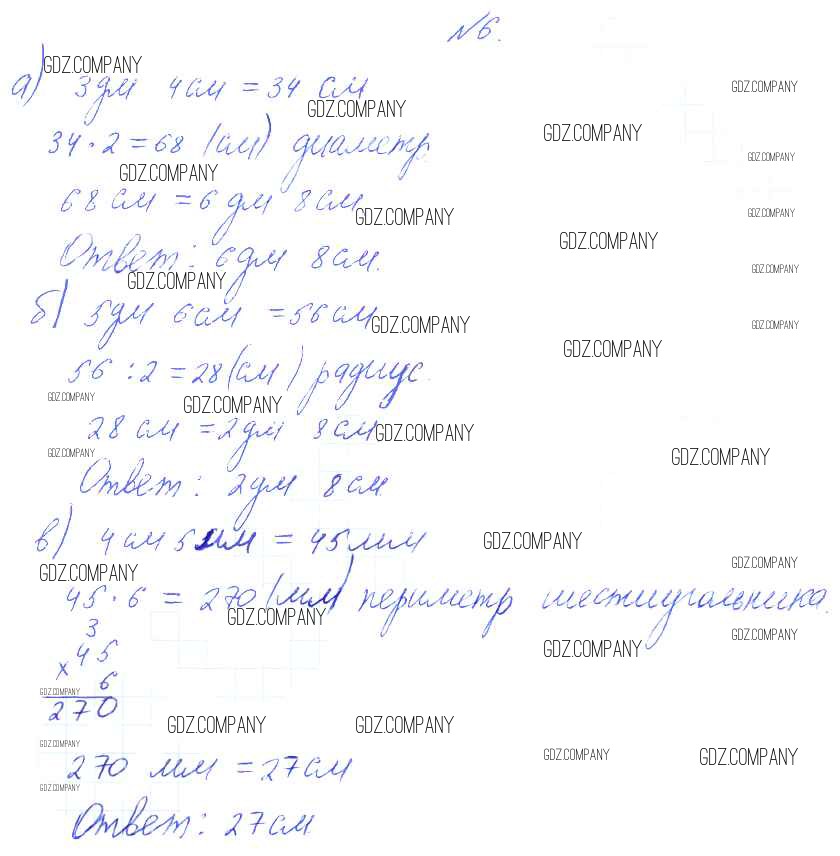 №6.
GDZ.COMPANY
а) 3дм 4см = 34 см
GDZ.COMPANY
GDZ.COMPANY
GDZ.COMPANY
34 · 2 = 68 (см) диаметр
GDZ.COMPANY
GDZ.COMPANY
68 см = 6 дм 8 см
GDZ.COMPANY
GDZ.COMPANY
GDZ.COMPANY
Ответ: 6дм 8см.
GDZ.COMPANY
GDZ.COMPANY
б) 5дм 6см = 56 см
GDZ.COMPANY
GDZ.COMPANY
GDZ.COMPANY
56 : 2 = 28 (см) радиус.
GDZ.COMPANY
GDZ.COMPANY
28 см = 2дм 8см
GDZ.COMPANY
GDZ.COMPANY
GDZ.COMPANY
Ответ: 2дм 8см
в) 4см 5мм = 45мм
GDZ.COMPANY
GDZ.COMPANY
GDZ.COMPANY
45 · 6 = 270 (мм) периметр шестиугольника.
GDZ.COMPANY
3
GDZ.COMPANY
× 45
GDZ.COMPANY
6
GDZ.COMPANY
270
GDZ.COMPANY
GDZ.COMPANY
GDZ.COMPANY
GDZ.COMPANY
GDZ.COMPANY
270 мм = 27см
GDZ.COMPANY
Ответ: 27см